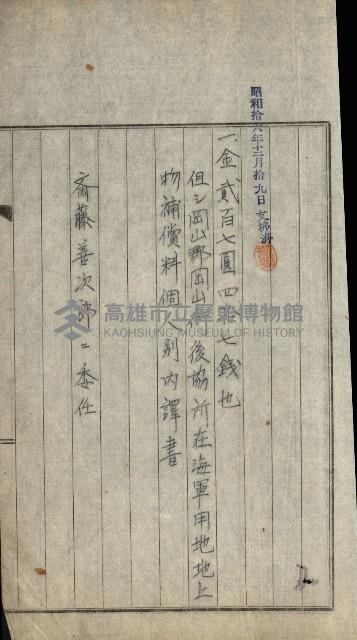 昭和拾六年十二月拾九日支拂濟
一、金貳百七圓四拾七錢也
但シ岡山郡岡山街後協所在海軍用地地上
物補償料個別內譯書
齋藤善次郎ニ委任
高雄市立歷史博物館
KAOHSIUNG MUSEUM OF HISTORY